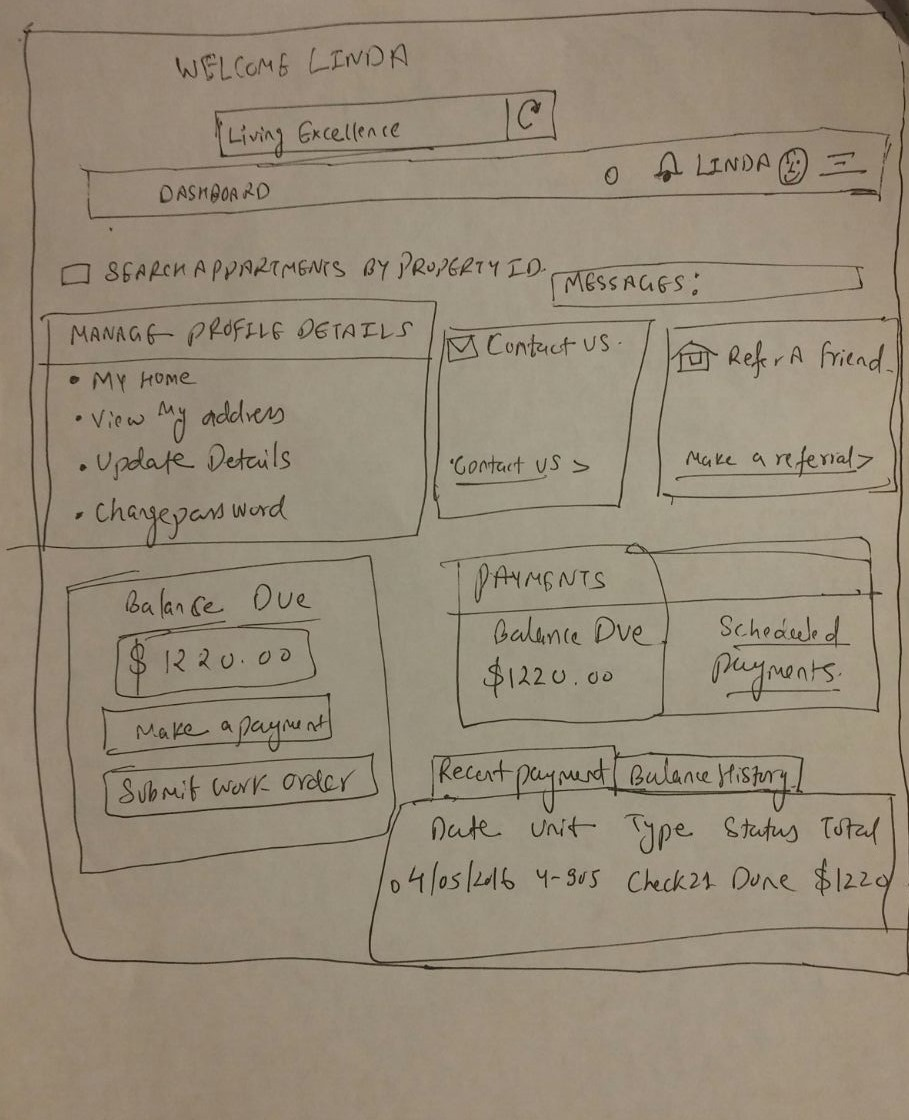 WELCOME LINDA
Living Excellence
DASHBOARD LINDA
SEARCH APPARTMENTS BY PROPERTY ID.
MESSAGES:
MANAGE PROFILE DETAILS
• MY HOME
• View My address
• Update Details
• Change password
Contact US.
Contact US >
Refer A friend
Make a referral >
Balance Due
$ 1220.00
Make a payment
Submit work order
PAYMENTS
Balance Due
$1220.00
Scheduled
payments.
Recent payment Balance History
Date Unit Type Status Total
04/05/2016 4-305 Check21 Done $1220